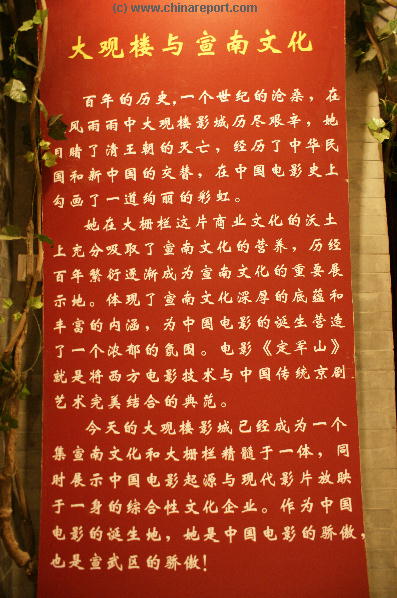 (c) www.chinareport.com
大观楼与宣南文化
百年的历史,一个世纪的沧桑，在
风雨雨中大观楼影城历尽艰辛，她
目睹了清王朝的灭亡，经历了中华民
国和新中国的交替，在中国电影史上
勾画了一道绚丽的彩虹。
她在大栅栏这片商业文化的沃土
上充分吸取了宣南文化的营养，历经
百年繁衍逐渐成为宣南文化的重要展
示地。体现了宣南文化深厚的底蕴和
丰富的内涵，为中国电影的诞生营造
了一个浓郁的氛围。电影《定军山》
就是将西方电影技术与中国传统京剧
艺术完美结合的典范。
今天的大观楼影城已经成为一个
集宣南文化和大栅栏精髓于一体，同
时展示中国电影起源与现代影片放映
于一身的综合性文化企业。作为中国
电影的诞生地，她是中国电影的骄傲，
也是宣武区的骄傲！